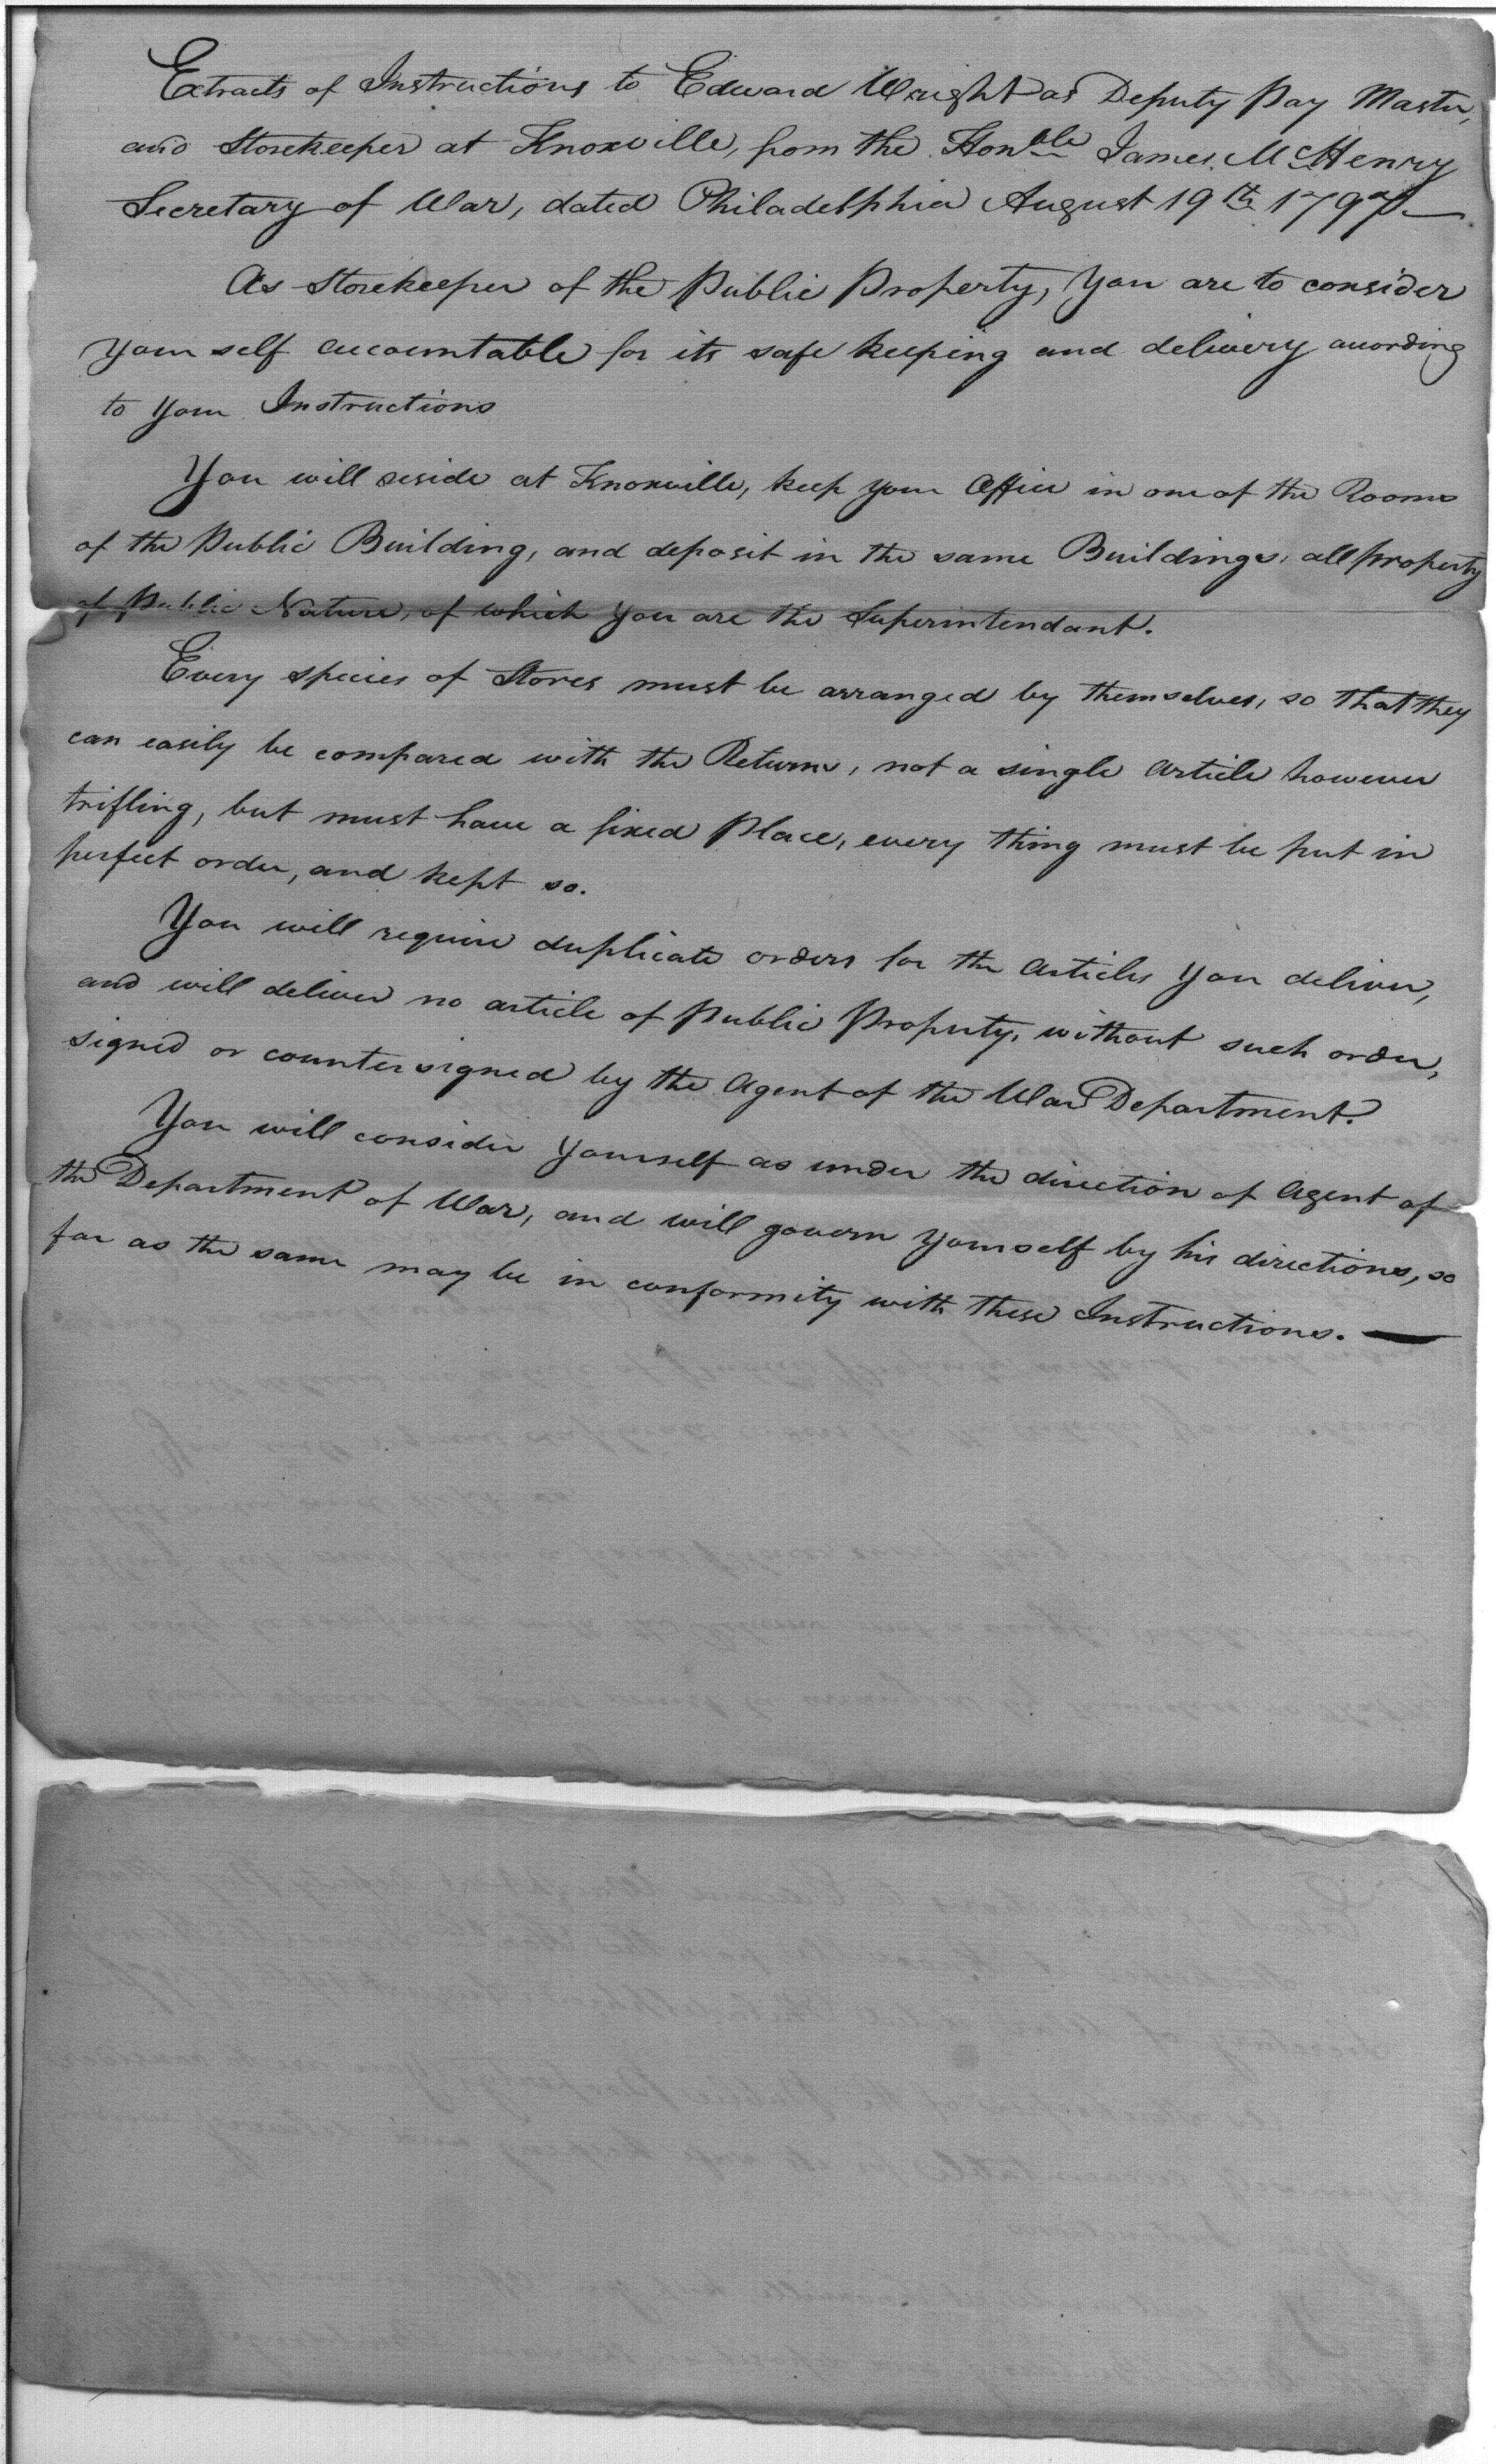 Extracts of Instructions to Edward Wright as Deputy Pay Master,
and Storekeeper at Knoxville, from the Honble James McHenry
Secretary of War, dated Philadelphia August 19th 1797—
As Storekeeper of the Public Property, You are to consider
Your self accountable for its safe keeping and delivery according
to Your Instructions
You will reside at Knoxville, keep your Office in one of the Rooms
of the Public Building, and deposit in the same Buildings, all property
of Public Nature, of which You are the Superintendant.
Every species of Stores must be arranged by themselves, so that they
can easily be compared with the Returns, not a single Article however
trifling, but must have a fixed Place, every thing must be put in
perfect order, and kept so.
You will require duplicate orders for the Articles You deliver,
and will deliver no article of Public Property, without such order,
signed or countersigned by the Agent of the War Department.
You will consider Yourself as under the direction of Agent of
the Department of War, and will govern Yourself by his directions, so
far as the same may be in conformity with these Instructions. —